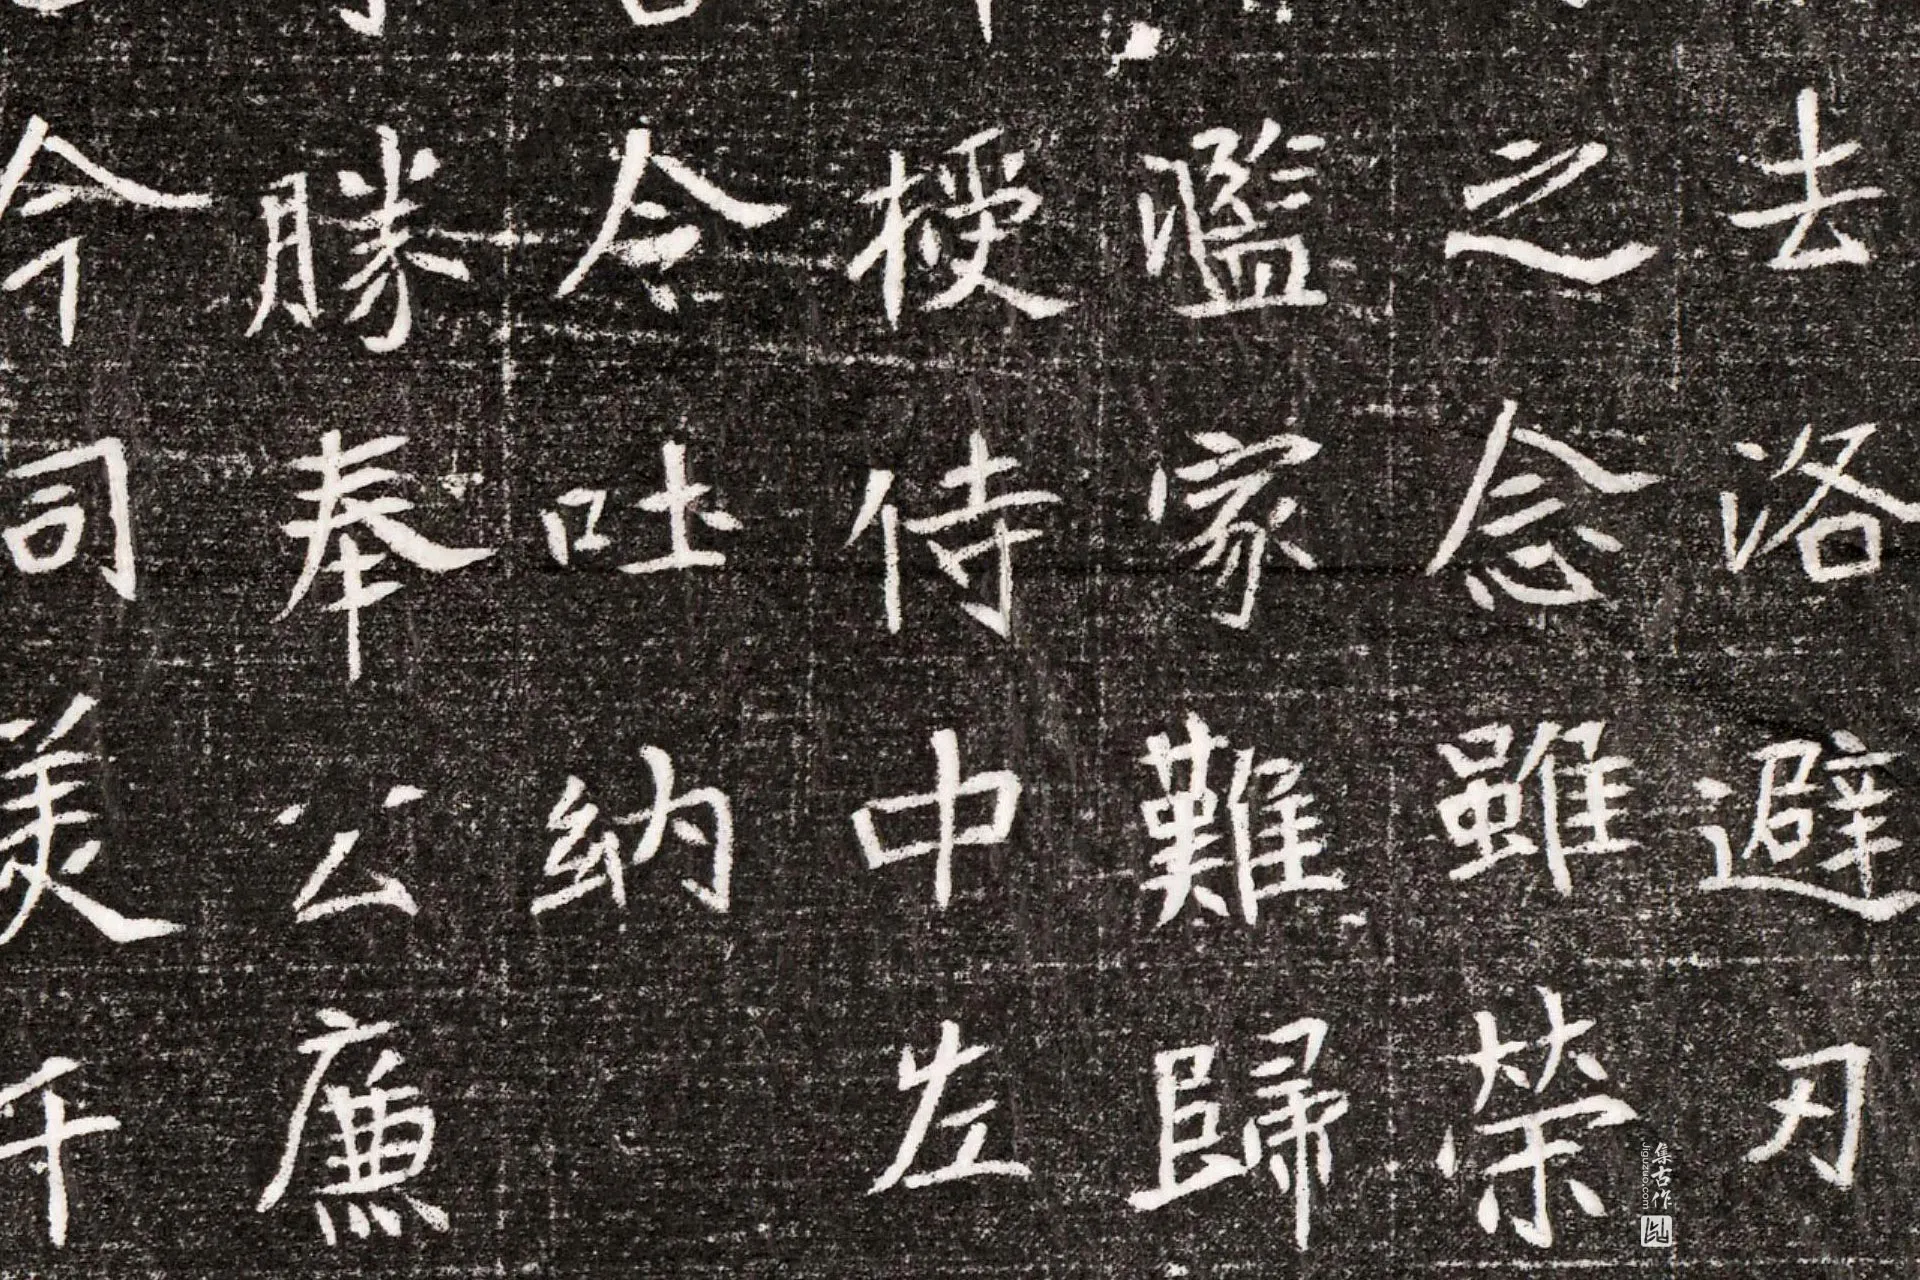 去洛避刃
之念雖榮
濫家難歸
授侍中左
令吐納
勝奉公廉
今司美千
集古作
Jiguzuo.com